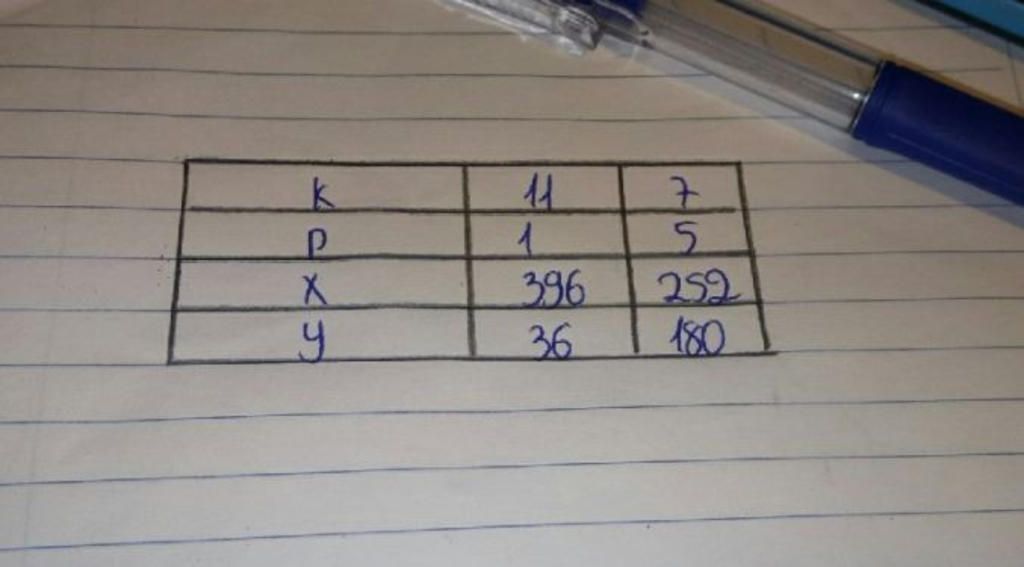 K 11 7
P 1 5
X 396 252
y 36 180